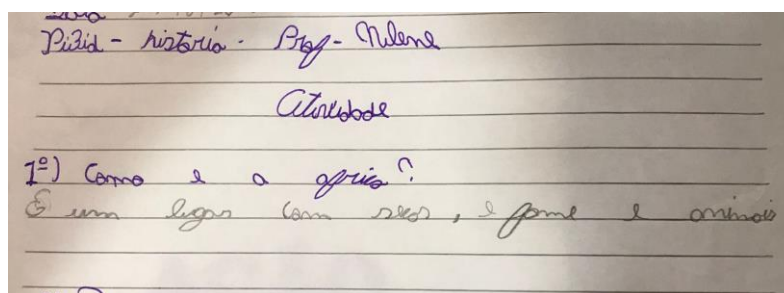 PiBid - história - Prof - Milene
Atividade
1º) Como e a africa?
É um lugar com seca, e fome e animais